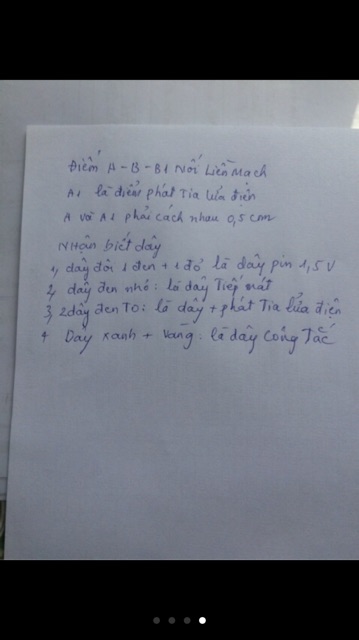 Điểm A - B - B1 Nối Liền Mạch
A1 là điểm phát Tia lửa điện
A và A1 phải cách nhau 0,5 cm
Nhận biết dây
1, dây đôi 1 đen + 1 đỏ là dây pin 1,5 V
2, dây đen nhỏ: là dây Tiếp mát
3, 2 dây đen TO: là dây + phát Tia lửa điện
4 Dây xanh + vàng: là dây Công Tắc